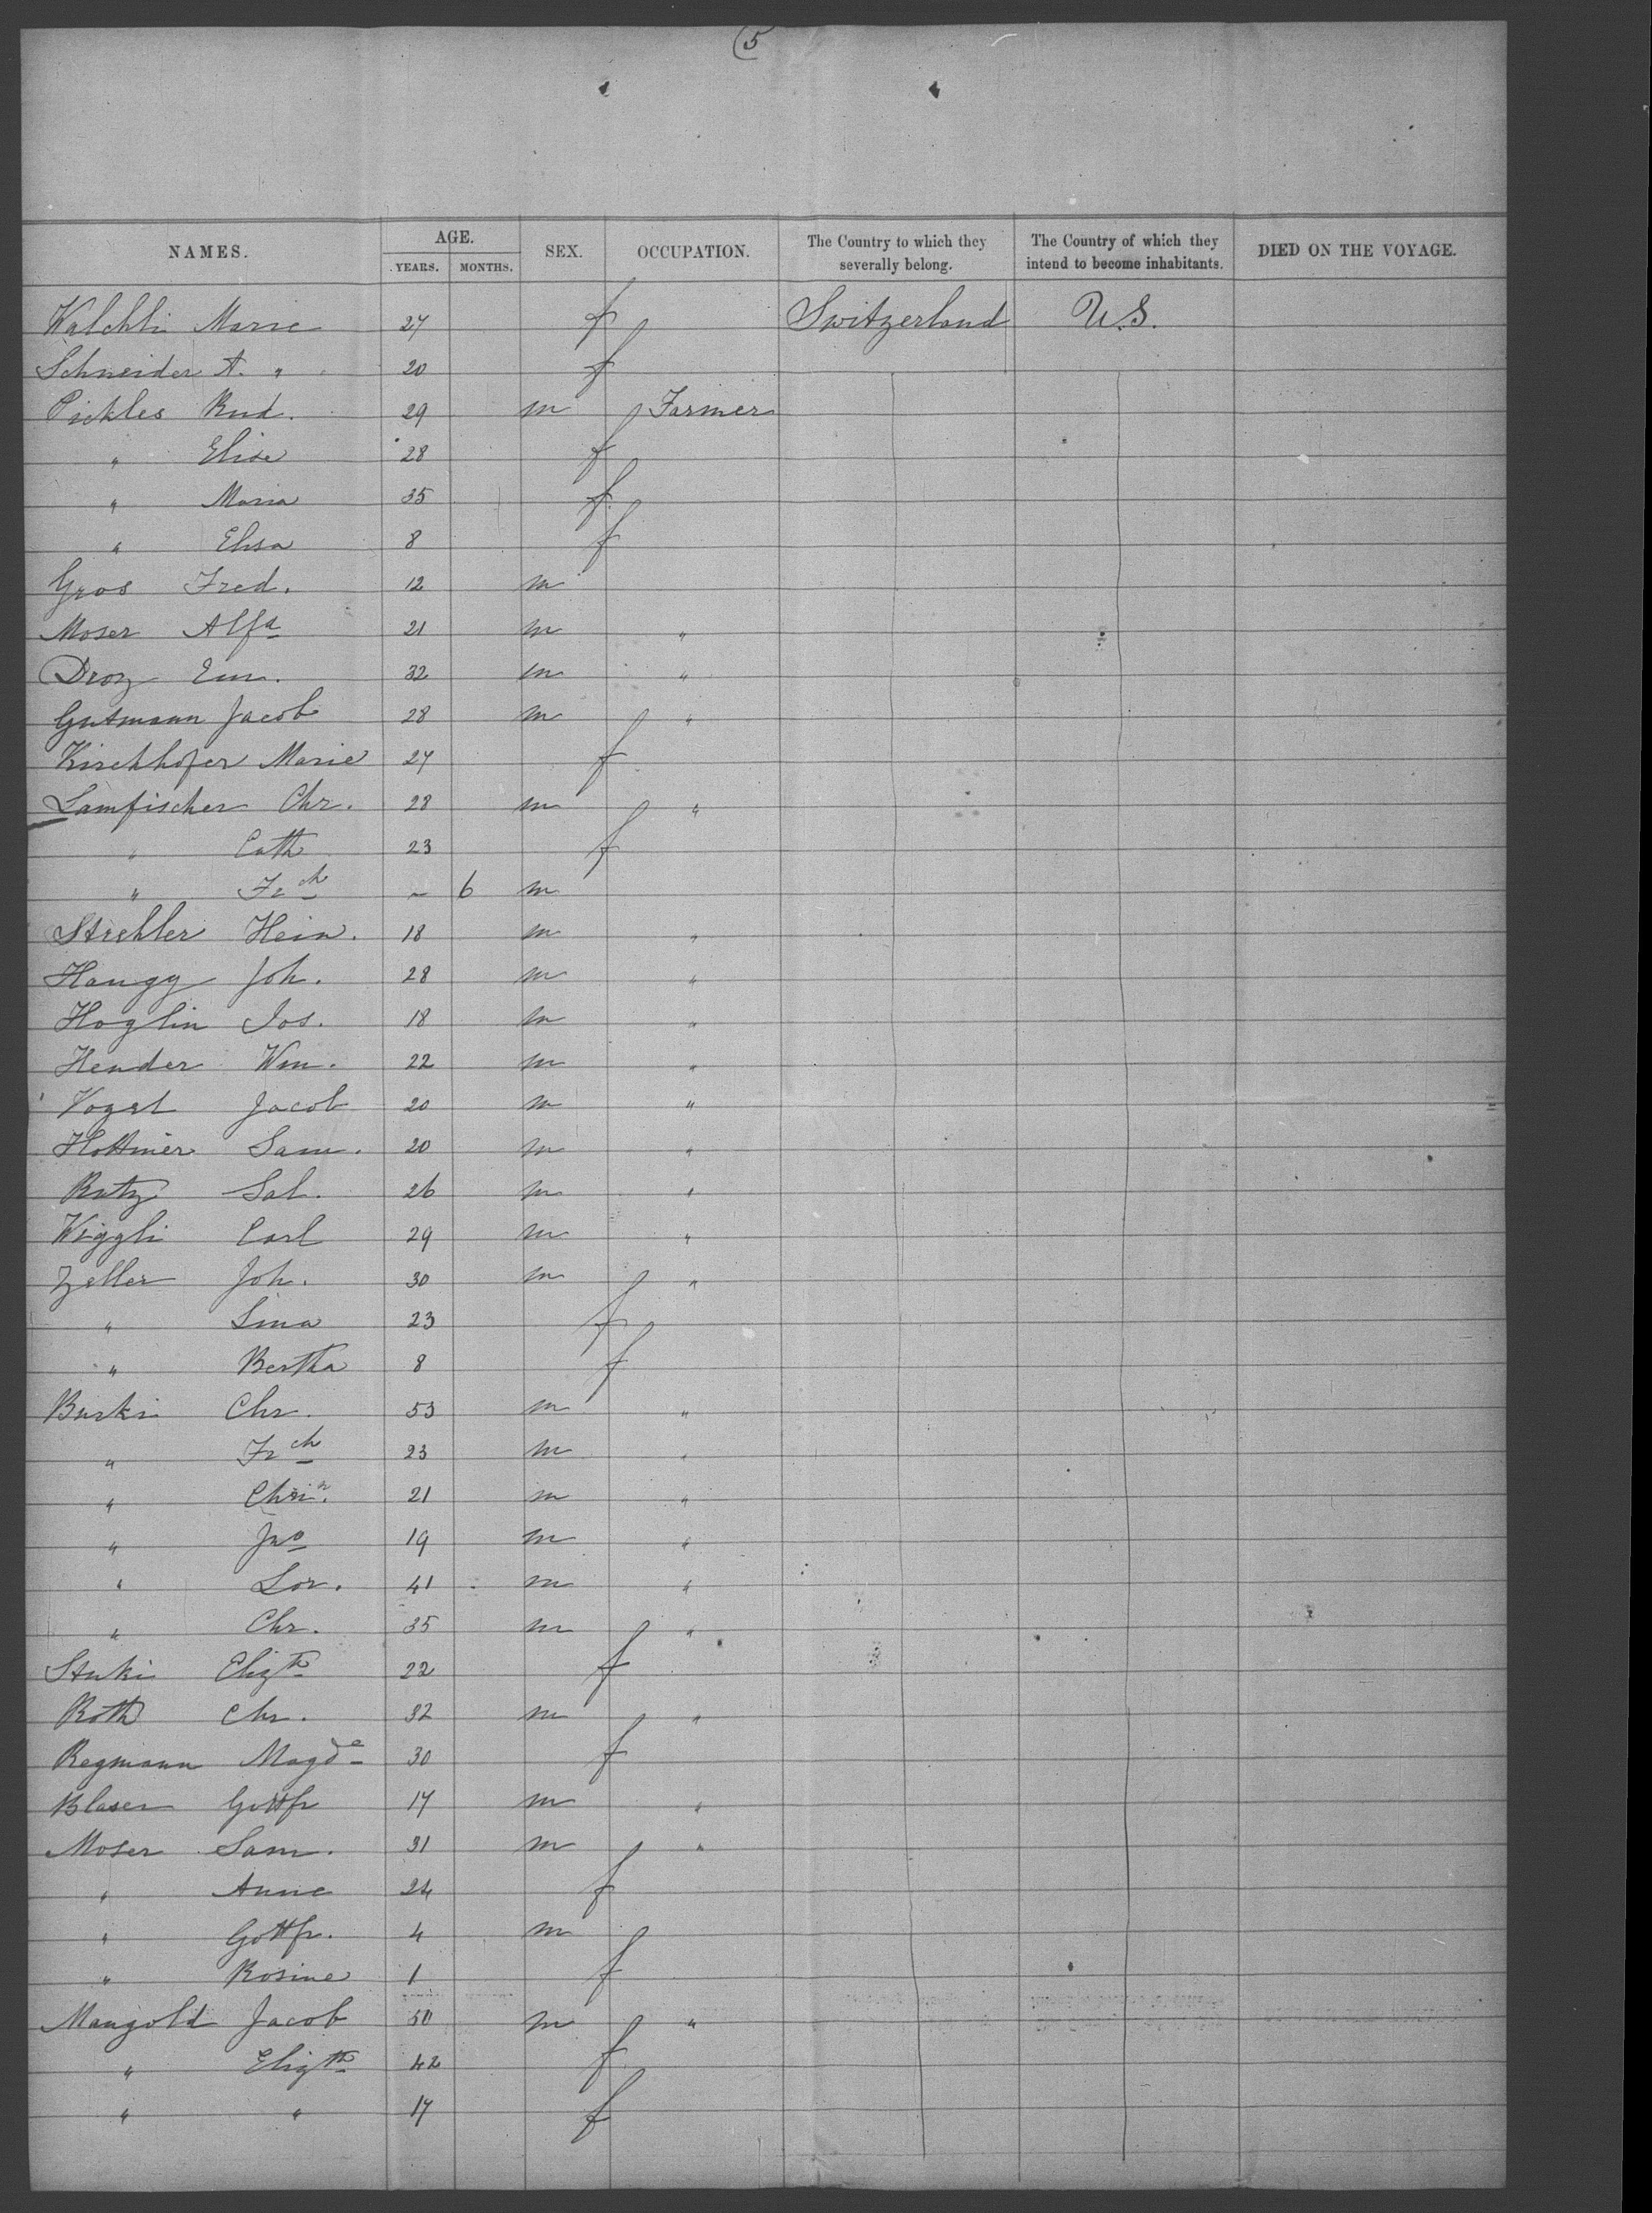 (5
NAMES. AGE. YEARS. MONTHS. SEX. OCCUPATION. The Country to which they severally belong. The Country of which they intend to become inhabitants. DIED ON THE VOYAGE.
Walchli Marie 27 f Switzerland U.S.
Schneider A. " 20 f
Pickles Rud. 29 m Farmer
" Elise 28 f
" Maria 35 f
" Elisa 8 f
Gros Fred. 12 m
Moser Alfd 21 m "
Droz Em. 32 m "
Gutmann Jacob 28 m "
Kirchhofer Marie 27 f
Lamfischer Chr. 28 m "
" Cath 23 f
" Frch - 6 m
Strehler Hein. 18 m "
Haugy Joh. 28 m "
Hoglin Jos. 18 m "
Hender Wm. 22 m "
Vogel Jacob 20 m "
Hottmer Sam. 20 m "
Rutz Sal. 26 m "
Wiggli Carl 29 m "
Zeller Joh. 30 m "
" Lina 23 f
" Bertha 8 f
Burki Chr. 53 m "
" Frch 23 m "
" Chrin. 21 m "
" Jno 19 m "
" Lor. 41 m "
" Chr. 35 m "
Stuki Elizth 22 f
Roth Chr. 32 m "
Regmann Magde 30 f
Blaser Gottfr 17 m "
Moser Sam. 31 m "
" Anne 24 f
" Gottfr. 4 m
" Rosine 1 f
Mangold Jacob 50 m "
" Elizth 42 f
" " 17 f